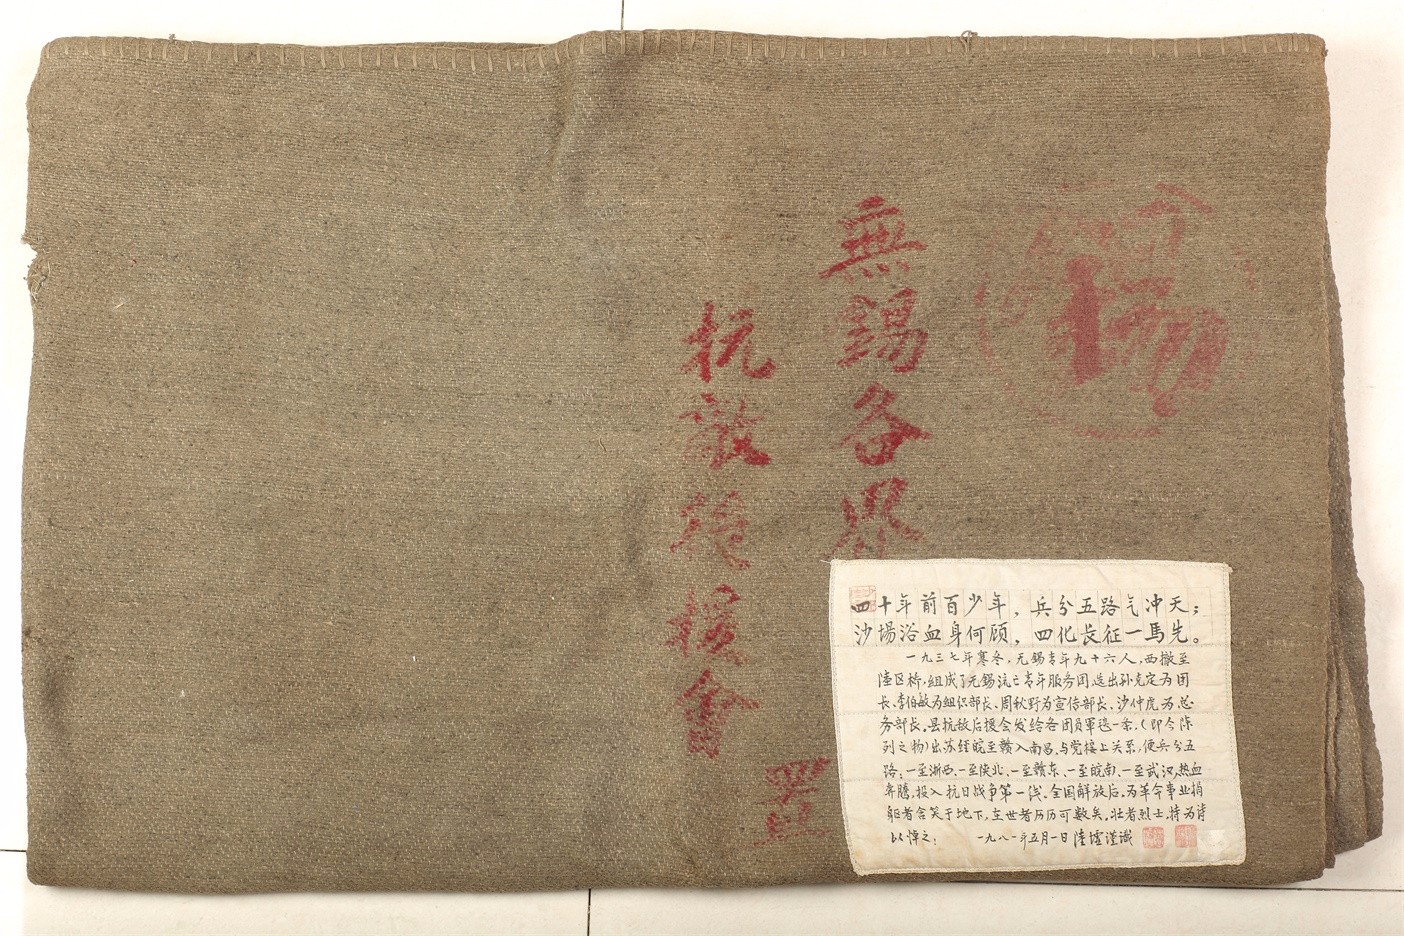 無錫各界
抗敵後援會
置
四十年前百少年，兵分五路气冲天；
沙場浴血身何顾，四化長征一馬先。
一九三七年寒冬，无锡青年九十六人，西撤至
陸区桥，组成了无锡流亡青年服务团，选出孙克定为团
长、李伯敏为组织部长、周秋野为宣传部长、沙仲虎为总
务部长。县抗敌后援会发给各团员軍毯一条，（即今陈
列之物）出苏经皖至赣入南昌，与党接上关系，便兵分五
路；一至浙西、一至陕北、一至赣东、一至皖南、一至武汉，热血
奔腾，投入抗日战争第一线。全国解放后，为革命事业捐
躯者含笑于地下，在世者历历可数矣，壮者烈士，特为诗
以悼之：
一九八一年五月一日陸墟谨識